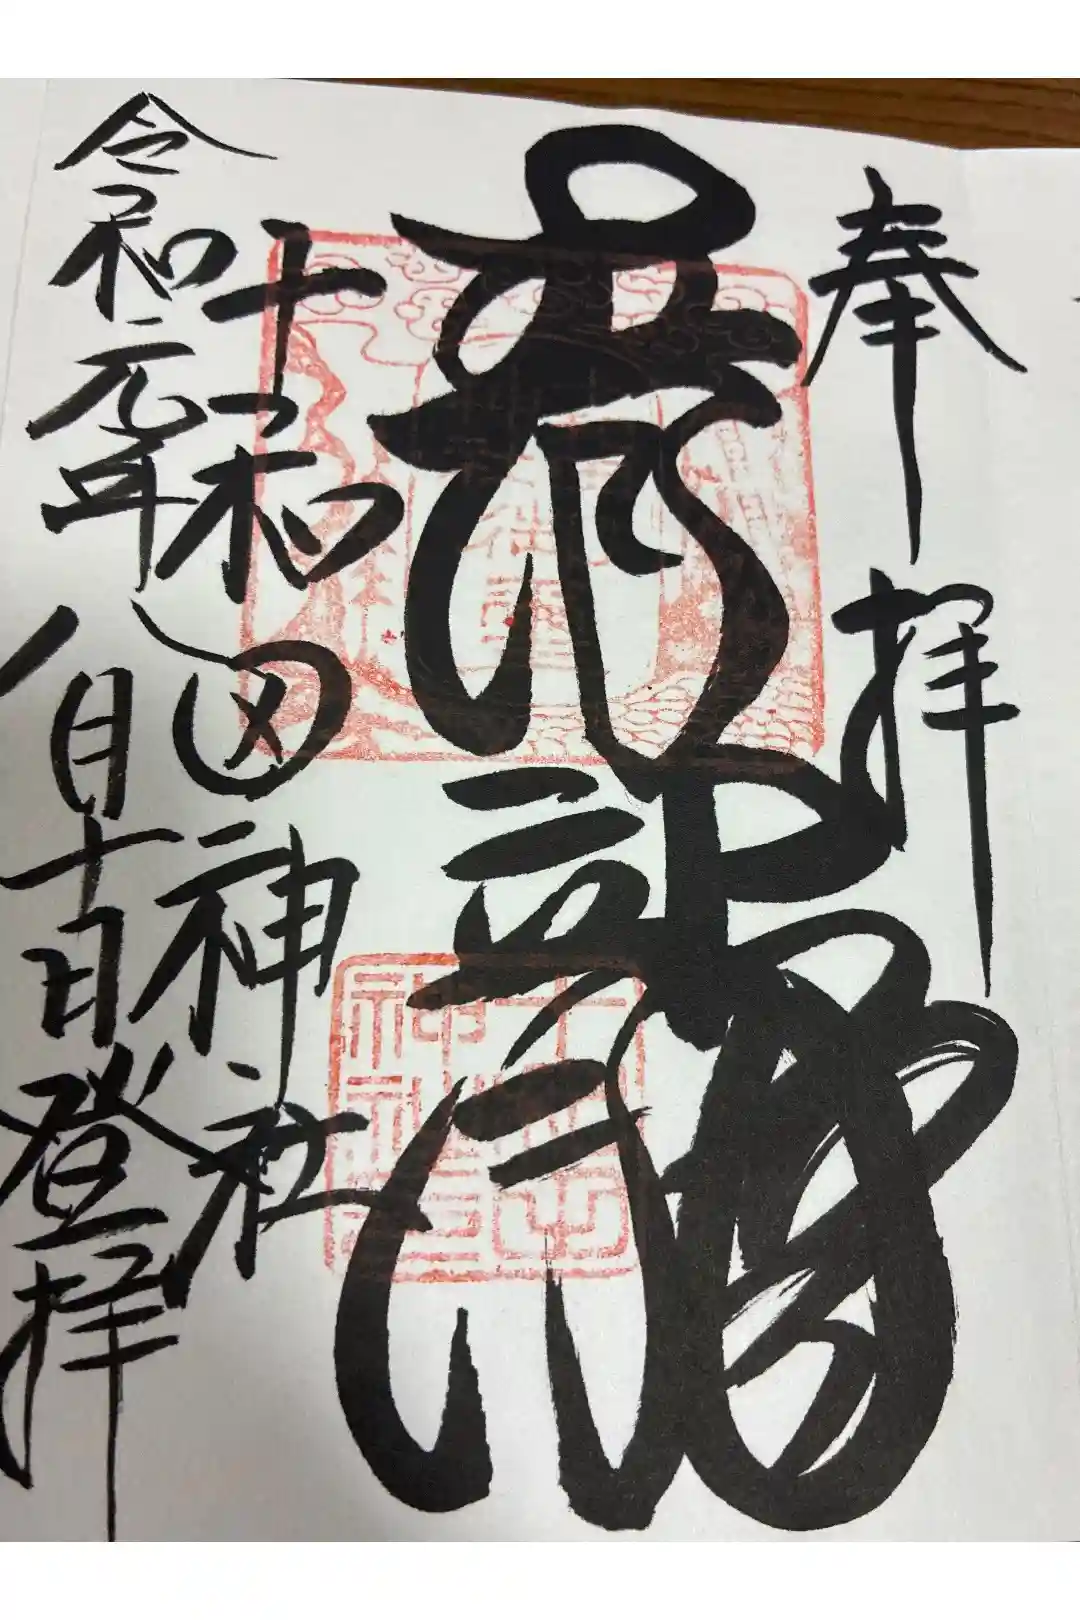 奉拝
青龍
十和田神社
令和元年八月十日登拝